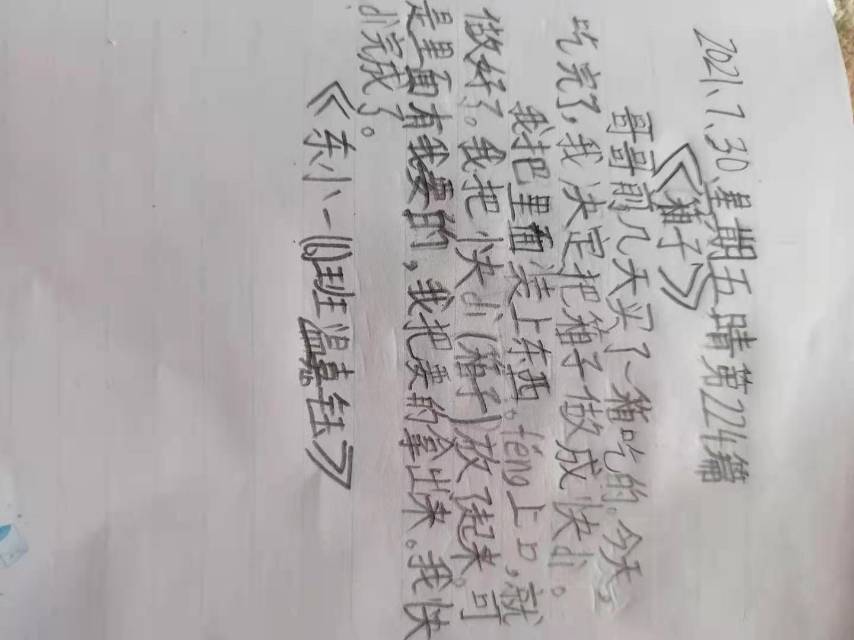 2021.7.30.星期五晴第224篇
《箱子》
哥哥前几天买了一箱吃的。今天,
吃完了,我决定把箱子做成快di。
我把里面装上东西。féng上口,就
做好了。我把快di(箱子)放了起来。可
是里面有我要的,我把要的拿出来。我快
di完成了。
《东小一(6)班温嘉钰》